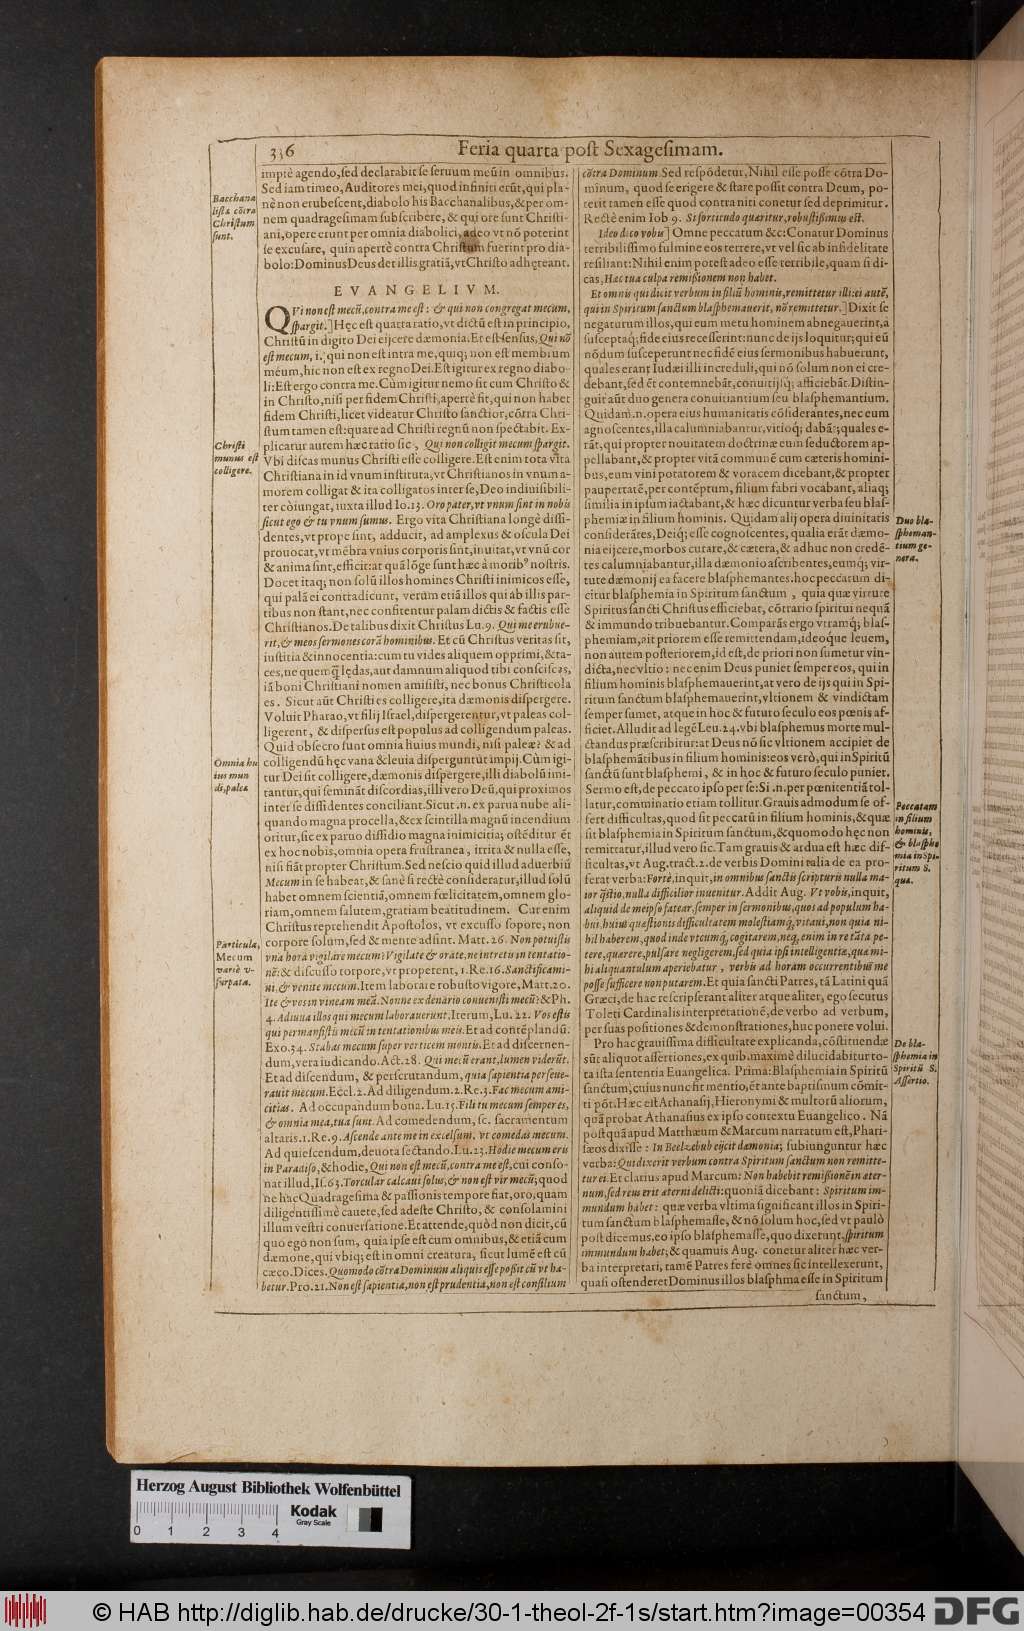 336 Feria quarta post Sexagesimam.
impiè agendo, sed declarabit se seruum meũ in omnibus.
Sed iam timeo, Auditores mei, quod infiniti erũt, qui pla-
nè non erubescent, diabolo his Bacchanalibus, & per om-
nem quadragesimam subscribere, & qui ore sunt Christi-
ani, opere erunt per omnia diabolici, adeo vt nõ poterint
se excusare, quin apertè contra Christum fuerint pro dia-
bolo: Dominus Deus det illis gratiã, vt Christo adhęreant.
Bacchana
listæ cõtra
Christum
sunt.
EVANGELIVM.
QVi non est mecũ, contra me est: & qui non congregat mecum,
spargit.] Hęc est quarta ratio, vt dictũ est in principio,
Christũ in digito Dei eijcere dæmonia. Et est sensus, Qui nõ
est mecum, i. qui non est intra me, quiq; non est membrum
meum, hic non est ex regno Dei. Est igitur ex regno diabo-
li: Est ergo contra me. Cùm igitur nemo sit cum Christo &
in Christo, nisi per fidem Christi, apertè fit, qui non habet
fidem Christi, licet videatur Christo sanctior, cõtra Chri-
stum tamen est: quare ad Christi regnũ non spectabit. Ex-
plicatur autem hæc ratio sic, Qui non colligit mecum spargit.
Vbi discas munus Christi esse colligere. Est enim tota vita
Christiana in id vnum instituta, vt Christianos in vnum a-
morem colligat & ita colligatos inter se, Deo indiuisibili-
ter cõiungat, iuxta illud Io. 13. Oro pater, vt vnum sint in nobis
sicut ego & tu vnum sumus. Ergo vita Christiana longè dissi-
dentes, vt prope sint, adducit, ad amplexus & oscula Dei
prouocat, vt mẽbra vnius corporis sint, inuitat, vt vnũ cor
& anima sint, efficit: at quã lõge sunt hæc à morib9 nostris.
Docet itaq; non solũ illos homines Christi inimicos esse,
qui palã ei contradicunt, verum etiã illos qui ab illis par-
tibus non stant, nec confitentur palam dictis & factis esse
Christianos. De talibus dixit Christus Lu. 9. Qui me erubue-
rit, & meos sermones corã hominibus. Et cũ Christus veritas sit,
iustitia & innocentia: cum tu vides aliquem opprimi, & ta-
ces, ne quemq̃ lędas, aut damnum aliquod tibi consciscas,
iã boni Christiani nomen amisisti, nec bonus Christicola
es. Sicut aũt Christi es colligere, ita dæmonis dispergere.
Voluit Pharao, vt filij Israel, dispergerentur, vt paleas col-
ligerent, & dispersus est populus ad colligendum paleas.
Quid obsecro sunt omnia huius mundi, nisi paleæ? & ad
colligendũ hęc vana & leuia disperguntur impij. Cùm igi-
tur Dei sit colligere, dæmonis dispergere, illi diabolũ imi-
tantur, qui seminãt discordias, illi vero Deũ, qui proximos
inter se dissidentes conciliant. Sicut .n. ex parua nube ali-
quando magna procella, & ex scintilla magnũ incendium
oritur, sic ex paruo dissidio magna inimicitia; ostẽditur ẽt
ex hoc nobis, omnia opera frustranea, irrita & nulla esse,
nisi fiãt propter Christum. Sed nescio quid illud aduerbiũ
Mecum in se habeat, & sanè si rectè consideratur, illud solũ
habet omnem scientiã, omnem fœlicitatem, omnem glo-
riam, omnem salutem, gratiam beatitudinem. Cur enim
Christus reprehendit Apostolos, vt excusso sopore, non
corpore solum, sed & mente adsint. Matt. 26. Non potuistis
vna hora vigilare mecum? Vigilate & orate, ne intretis in tentatio-
nẽ: & discusso torpore, vt properent, 1. Re. 16. Sanctificami-
ni, & venite mecum. Item laborare robusto vigore, Matt. 20.
Ite & vos in vineam meã. Nonne ex denario conuenisti mecũ? & Ph.
4. Adiuua illos qui mecum laborauerunt, Iterum, Lu. 22. Vos estis
qui permansistis mecũ in tentationibus meis. Et ad contẽplandũ.
Exo. 34. Stabas mecum super verticem montis. Et ad discernen-
dum, vera iudicando. Act. 28. Qui mecũ erant, lumen viderũt.
Et ad discendum, & perscrutandum, quia sapientia perseue-
rauit mecum. Eccl. 2. Ad diligendum. 2. Re. 3. Fac mecum ami-
citias. Ad occupandum bona. Lu. 15. Fili tu mecum semper es,
& omnia mea, tua sunt. Ad comedendum, sc. sacramentum
altaris. 1. Re. 9. Ascende ante me in excelsum, vt comedas mecum.
Ad quiescendum, deuota sectando. Lu. 23. Hodie mecum eris
in Paradiso, & hodie, Qui non est mecũ, contra me est, cui conso-
nat illud, Is. 63. Torcular calcaui solus, & non est vir mecũ; quod
ne hac Quadragesima & passionis tempore fiat, oro, quam
diligentissimè cauete, sed adeste Christo, & consolamini
illum vestri conuersatione. Et attende, quòd non dicit, cũ
quo ego non sum, quia ipse est cum omnibus, & etiã cum
dæmone, qui vbiq; est in omni creatura, sicut lumẽ est cũ
cæco. Dices. Quomodo cõtra Dominum aliquis esse possit cũ vt ha-
betur. Pro. 21. Non est sapientia, non est prudentia, non est consilium
Christi
munus est
colligere.
Omnia hu
ius mun
di, paleæ
Particula,
Mecum
variè v-
surpata.
cõtra Dominum Sed respõdetur, Nihil esse posse cõtra Do-
minum, quod se erigere & stare possit contra Deum, po-
terit tamen esse quod contra niti conetur sed deprimitur.
Rectè enim Iob 9. Si fortitudo quæritur, robustissimus est.
Ideo dico vobis] Omne peccatum &c: Conatur Dominus
terribilissimo fulmine eos terrere, vt vel sic ab infidelitate
resiliant: Nihil enim potest adeo esse terribile, quam si di-
cas, Hac tua culpa remissionem non habet.
Et omnis qui dicit verbum in filiũ hominis, remittetur illi: ei autẽ,
qui in Spiritum sanctum blasphemauerit, nõ remittetur.] Dixit se
negaturum illos, qui eum metu hominem abnegauerint, à
susceptaq; fide eius recesserint: nunc de ijs loquitur; qui eũ
nõdum susceperunt nec fidẽ eius sermonibus habuerunt,
quales erant Iudæi illi increduli, qui nõ solum non ei cre-
debant, sed ẽt contemnebãt, conuitijsq; afficiebãt. Distin-
guit aũt duo genera conuitiantium seu blasphemantium.
Quidam .n. opera eius humanitatis cõsiderantes, nec eum
agnoscentes, illa calumniabantur, vitioq; dabãt; quales e-
rãt, qui propter nouitatem doctrinæ eum seductorem ap-
pellabant, & propter vitã communẽ cum cæteris homini-
bus, eum vini potatorem & voracem dicebant, & propter
paupertatẽ, per contẽptum, filium fabri vocabant, aliaq;
similia in ipsum iactabant, & hæc dicuntur verba seu blas-
phemiæ in filium hominis. Quidam alij opera diuinitatis
considerãtes, Deiq; esse cognoscentes, qualia erãt dæmo-
nia eijcere, morbos curare, & cætera, & adhuc non credẽ-
tes calumniabantur, illa dæmonio ascribentes, eumq; vir-
tute dæmonij ea facere blasphemantes. hoc peccatum di-
citur blasphemia in Spiritum sanctum, quia quæ virture
Spiritus sancti Christus efficiebat, cõtrario spiritui nequã
& immundo tribuebantur. Comparãs ergo vtramq; blas-
phemiam, ait priorem esse remittendam, ideoque leuem,
non autem posteriorem, id est, de priori non sumetur vin-
dicta, nec vltio: nec enim Deus puniet semper eos, qui in
filium hominis blasphemauerint, at vero de ijs qui in Spi-
ritum sanctum blasphemauerint, vltionem & vindictam
semper sumet, atque in hoc & futuro seculo eos pœnis af-
ficiet. Alludit ad legẽ Leu. 24. vbi blasphemus morte mul-
ctandus præscribitur: at Deus nõ sic vltionem accipiet de
blasphemãtibus in filium hominis: eos verò, qui in Spiritũ
sanctũ sunt blasphemi, & in hoc & futuro seculo puniet.
Sermo est, de peccato ipso per se: Si .n. per pœnitentiã tol-
latur, comminatio etiam tollitur. Grauis admodum se of-
fert difficultas, quod sit peccatũ in filium hominis, & quæ
sit blasphemia in Spiritum sanctum, & quomodo hęc non
remittatur, illud vero sic. Tam grauis & ardua est hæc dif-
ficultas, vt Aug. tract. 2. de verbis Domini talia de ea pro-
ferat verba: Fortè, inquit, in omnibus sanctis scripturis nulla ma-
ior q̃stio, nulla difficilior inuenitur. Addit Aug. Vt vobis, inquit,
aliquid de meipso fatear, semper in sermonibus, quos ad populum ha-
bui, huius quæstionis difficultatem molestiamq; vitaui, non quia ni-
hil haberem, quod inde vtcumq; cogitarem, neq; enim in re tãta pe-
tere, quærere, pulsare negligerem, sed quia ipsi intelligentiæ, quæ mi-
hi aliquantulum aperiebatur, verbis ad horam occurrentibus me
posse sufficere non putarem. Et quia sancti Patres, tã Latini quã
Græci, de hac re scripserant aliter atque aliter, ego secutus
Toleti Cardinalis interpretationẽ, de verbo ad verbum,
per suas positiones & demonstrationes, huc ponere volui.
Pro hac grauissima difficultate explicanda, cõstituendæ
sũt aliquot assertiones, ex quib. maximè dilucidabitur to-
ta ista sententia Euangelica. Prima: Blasphemia in Spiritũ
sanctum, cuius nunc fit mentio, ẽt ante baptismum cõmit-
ti põt. Hæc est Athanasij, Hieronymi & multorũ aliorum,
quã probat Athanasius ex ipso contextu Euangelico. Nã
postquã apud Matthæum & Marcum narratum est, Phari-
sæos dixisse: In Beelzebub eijcit dæmonia; subiunguntur hæc
verba: Qui dixerit verbum contra Spiritum sanctum non remitte-
tur ei. Et clarius apud Marcum: Non habebit remissionẽ in æter-
num, sed reus erit æterni delicti: quoniã dicebant: Spiritum im-
mundum habet: quæ verba vltima significant illos in Spiri-
tum sanctum blasphemasse, & nõ solum hoc, sed vt paulò
post dicemus, eo ipso blasphemasse, quo dixerunt, spiritum
immundum habet; & quamuis Aug. conetur aliter hæc ver-
ba interpretari, tamẽ Patres ferè omnes sic intellexerunt,
quasi ostenderet Dominus illos blasphmasse in Spiritum
sanctum,
Duo bla-
spheman-
tium ge-
nera.
Peccatum
in filium
hominis,
& blasphe
mia in Spi-
ritum S.
quæ.
De bla-
sphemia in
Spiritũ S.
Assertio.
Herzog August Bibliothek Wolfenbüttel
Kodak
Gray Scale
0 1 2 3 4
© HAB http://diglib.hab.de/drucke/30-1-theol-2f-1s/start.htm?image=00354 DFG